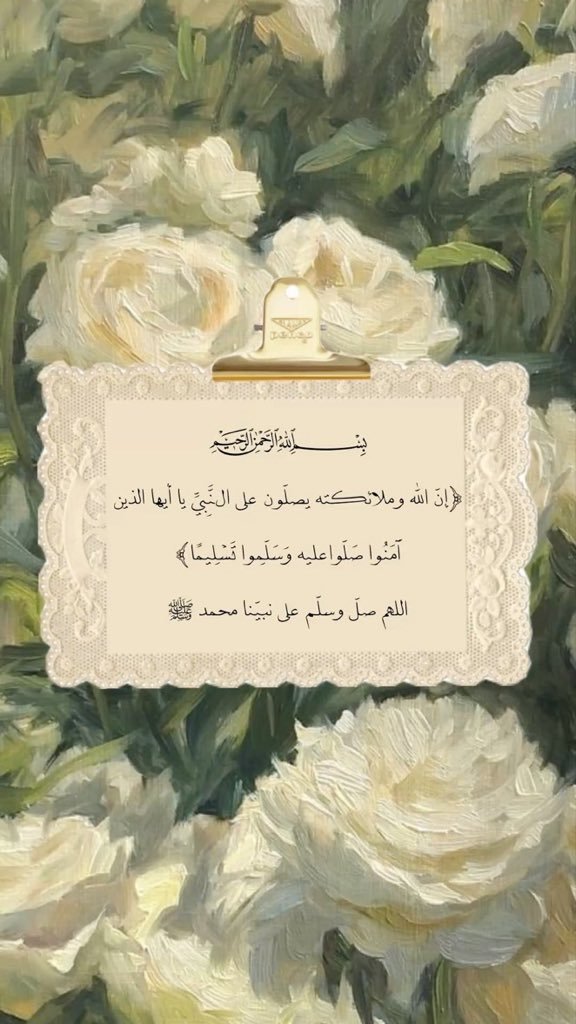 بِسْمِ اللَّهِ الرَّحْمَٰنِ الرَّحِيمِ
﴿إنّ الله وملائكته يصلّون على النَّبِيِّ يا أيها الذين
آمَنُوا صَلّوا عليه وَسَلِّموا تَسْلِيمًا﴾
اللهم صلّ وسلّم على نبيّنا محمد ﷺ